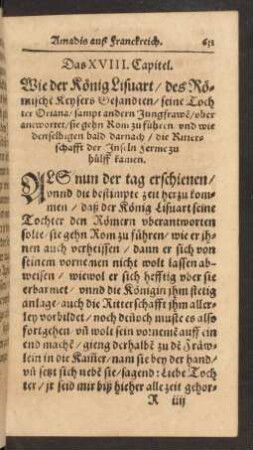 Amadis auß Franckreich. 631
Das XVIII. Capitel.
Wie der König Lisuart / des Rö-
mischē Keysers Gesandten / seine Toch
ter Oriana / sampt andern Jungfrawē / vber
antwortet / sie gehn Rom zu führen vnd wie
denselbigten bald darnach / die Ritter-
schafft der Inseln Ferme zu
hülff kamen.
ALS nun der tag erschienen /
vnnd die bestimpte zeit herzu kom
men / daß der König Lisuart seine
Tochter den Römern vberantworten
solte / sie gehn Rom zu führen / wie er ih-
nen auch verheissen / dann er sich von
seinem vornemen nicht wolt lassen ab-
weisen / wiewol er sich hefftig vber sie
erbarmet / vnnd die Königin jhm stetig
anlage / auch die Ritterschafft jhm aller-
ley vorbildet / noch deñoch muste es also
fortgehen / vñ wolt sein vornemē auff ein
end machē / gieng derhalbē zu dē Fräw-
lein in die Kam̃er / nam sie bey der hand /
vñ setzt sich nebē sie / sagend: Liebe Toch
ter / jr seid mir biß hieher alle zeit gehor-
R iiij